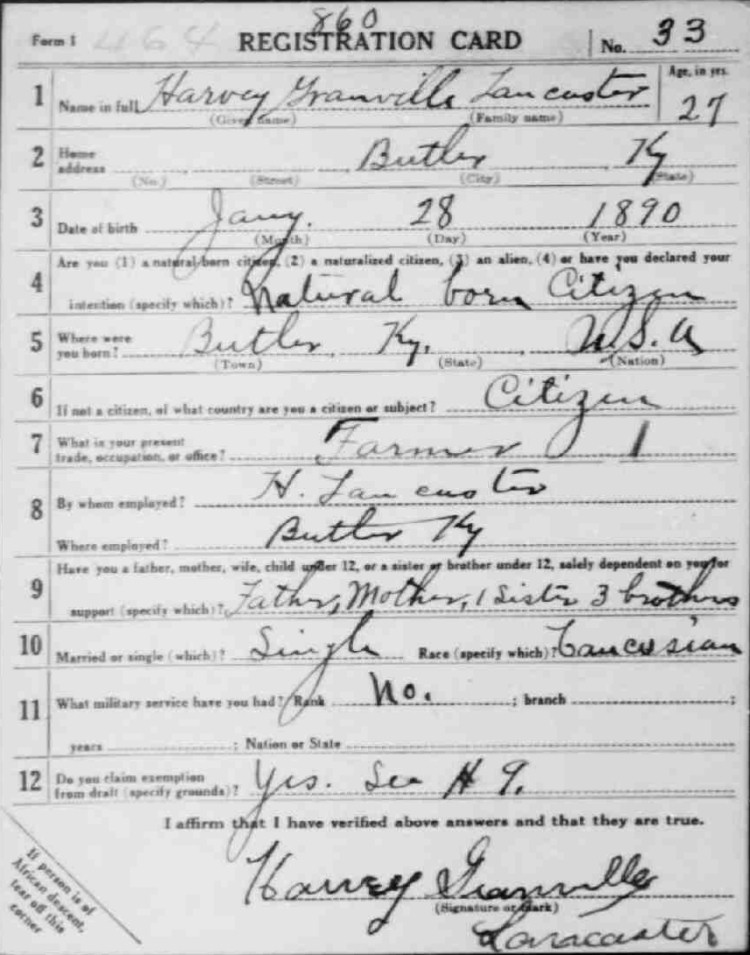 860
Form 1 464 REGISTRATION CARD No. 33
1 Name in full Harvey Granville Lancaster Age, in yrs. 27
(Given name) (Family name)
2 Home address Butler Ky
(No.) (Street) (City) (State)
3 Date of birth Jany. 28 1890
(Month) (Day) (Year)
Are you (1) a natural-born citizen, (2) a naturalized citizen, (3) an alien, (4) or have you declared your
4 intention (specify which)? Natural born Citizen
5 Where were you born? Butler Ky. U.S.A
(Town) (State) (Nation)
6 If not a citizen, of what country are you a citizen or subject? Citizen
7 What is your present trade, occupation, or office? Farmer 1
8 By whom employed? H. Lancaster
Where employed? Butler Ky
Have you a father, mother, wife, child under 12, or a sister or brother under 12, solely dependent on you for
9 support (specify which)? Father, Mother, 1 Sister 3 brothers
10 Married or single (which)? Single Race (specify which)? Caucasian
11 What military service have you had? Rank No. ; branch ;
years ; Nation or State
12 Do you claim exemption from draft (specify grounds)? Yes. See # 9.
I affirm that I have verified above answers and that they are true.
Harvey Granville
(Signature or mark)
Lanacaster
If person is of
African descent,
tear off this
corner